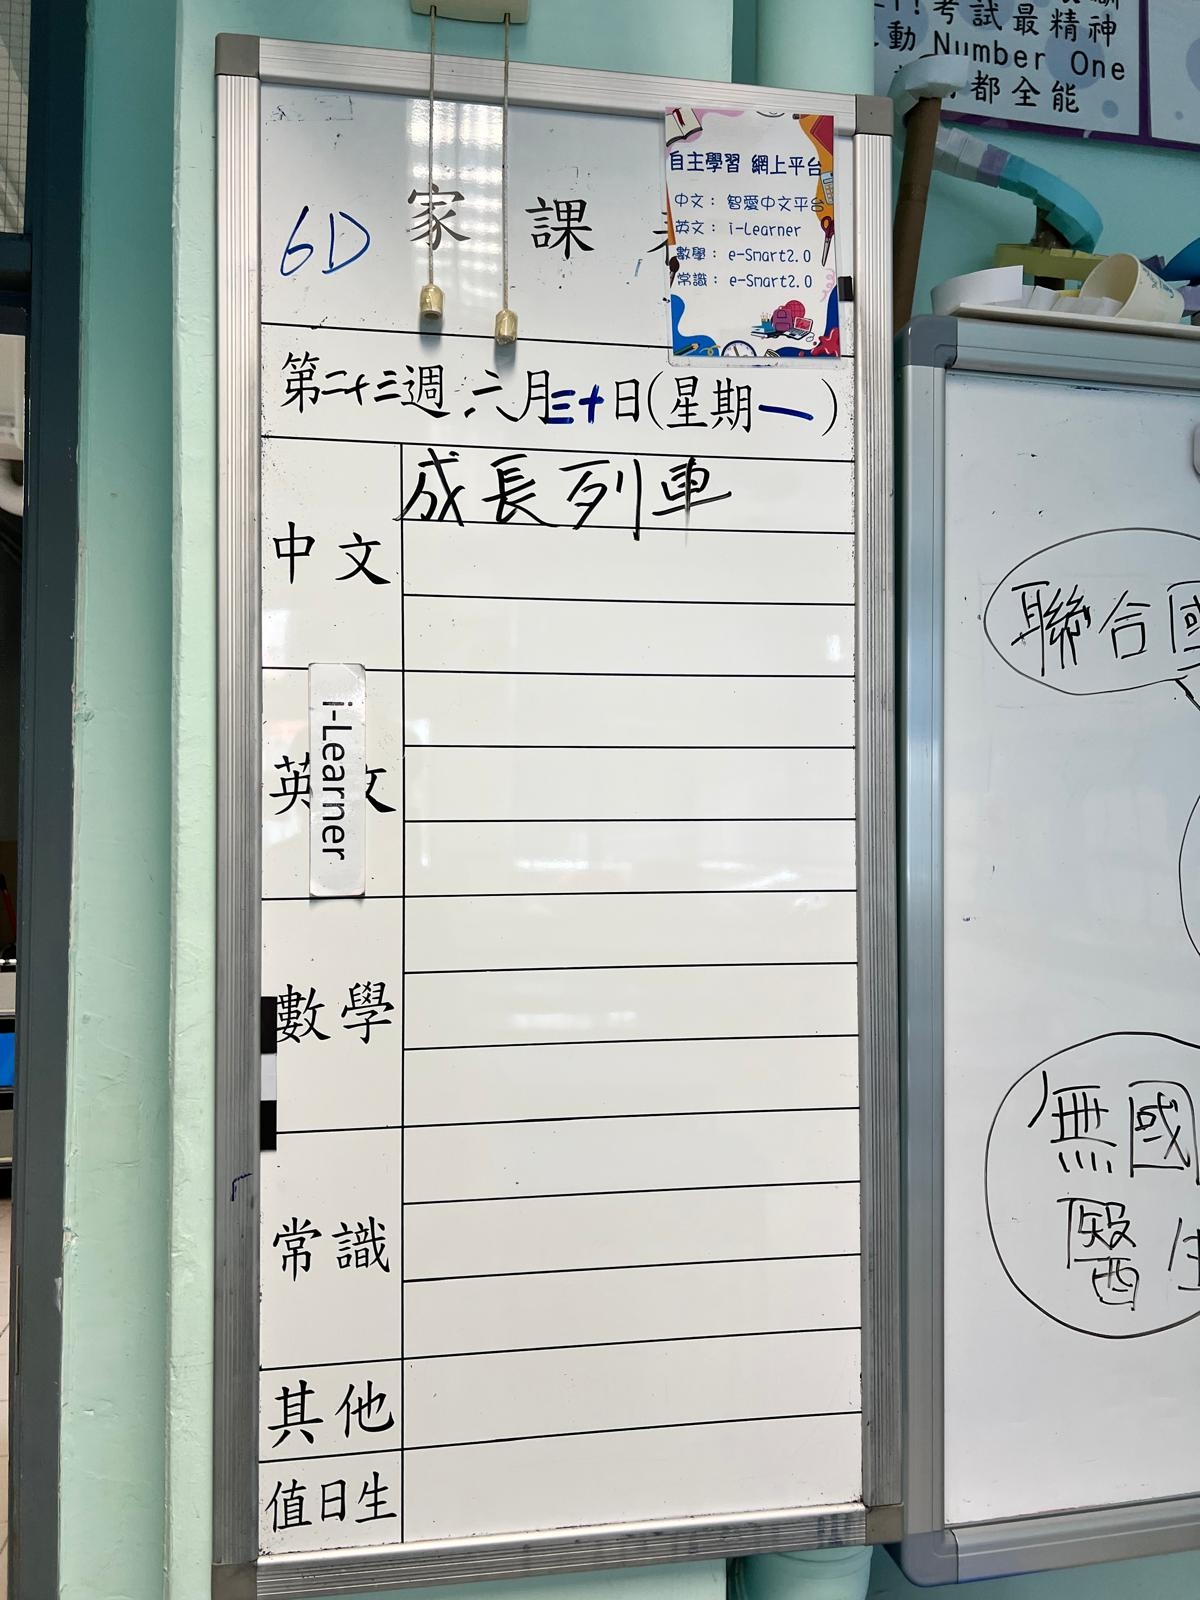 考試最精神
動 Number One
都全能
自主學習 網上平台
中文： 智愛中文平台
英文： i-Learner
數學： e-Smart2.0
常識： e-Smart2.0
6D 家課
第二十三週,六月三十日(星期一)
中文
成長列車
英文
i-Learner
數學
常識
其他
值日生
聯合國
無國
醫生